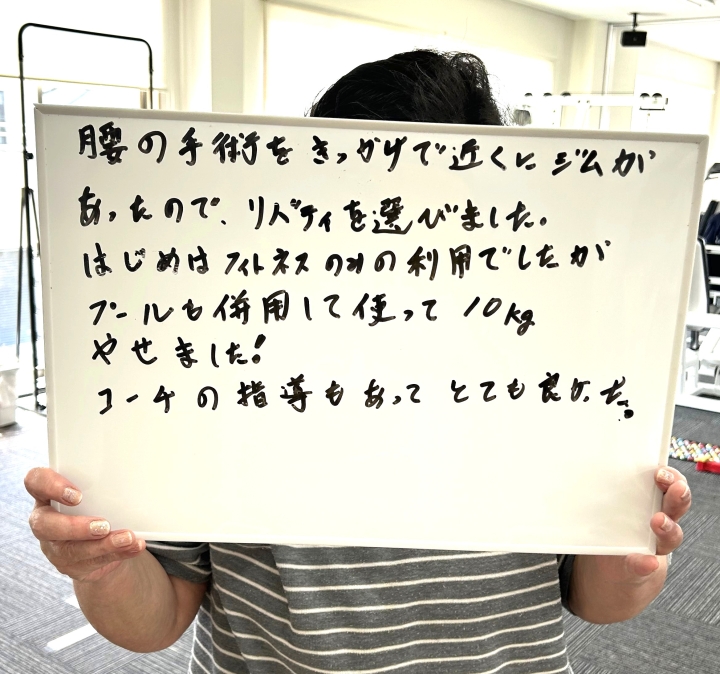 腰の手術をきっかけで近くにジムが
あったので、リバティを選びました。
はじめはフィットネスのみの利用でしたが
プールも併用して使って10kg
やせました!
コーチの指導もあってとても良かった。